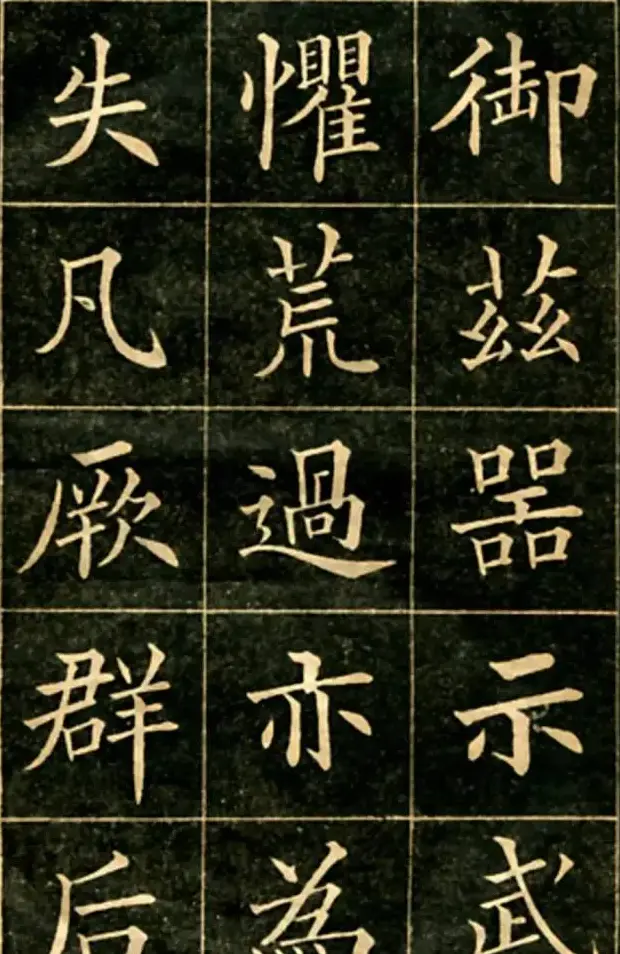 御茲器示武
懼荒過亦為
失凡厥群后